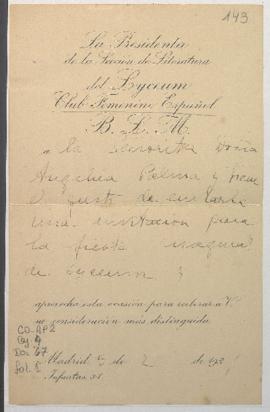 143
La Presidenta
de la Sección de Literatura
del Lyceum
Club Femenino Español
B. L. M.
a la Señorita Doña
Angélica Palma y tiene
el gusto de enviarla
una invitación para
la fiesta
de Lyceum y
aprovecha esta ocasión para reiterar a V.
su consideración más distinguida.
Madrid, de 2 de 193
Infantas, 31.
CO. AP2
Cy. 4
Do. 67
Fol. 1